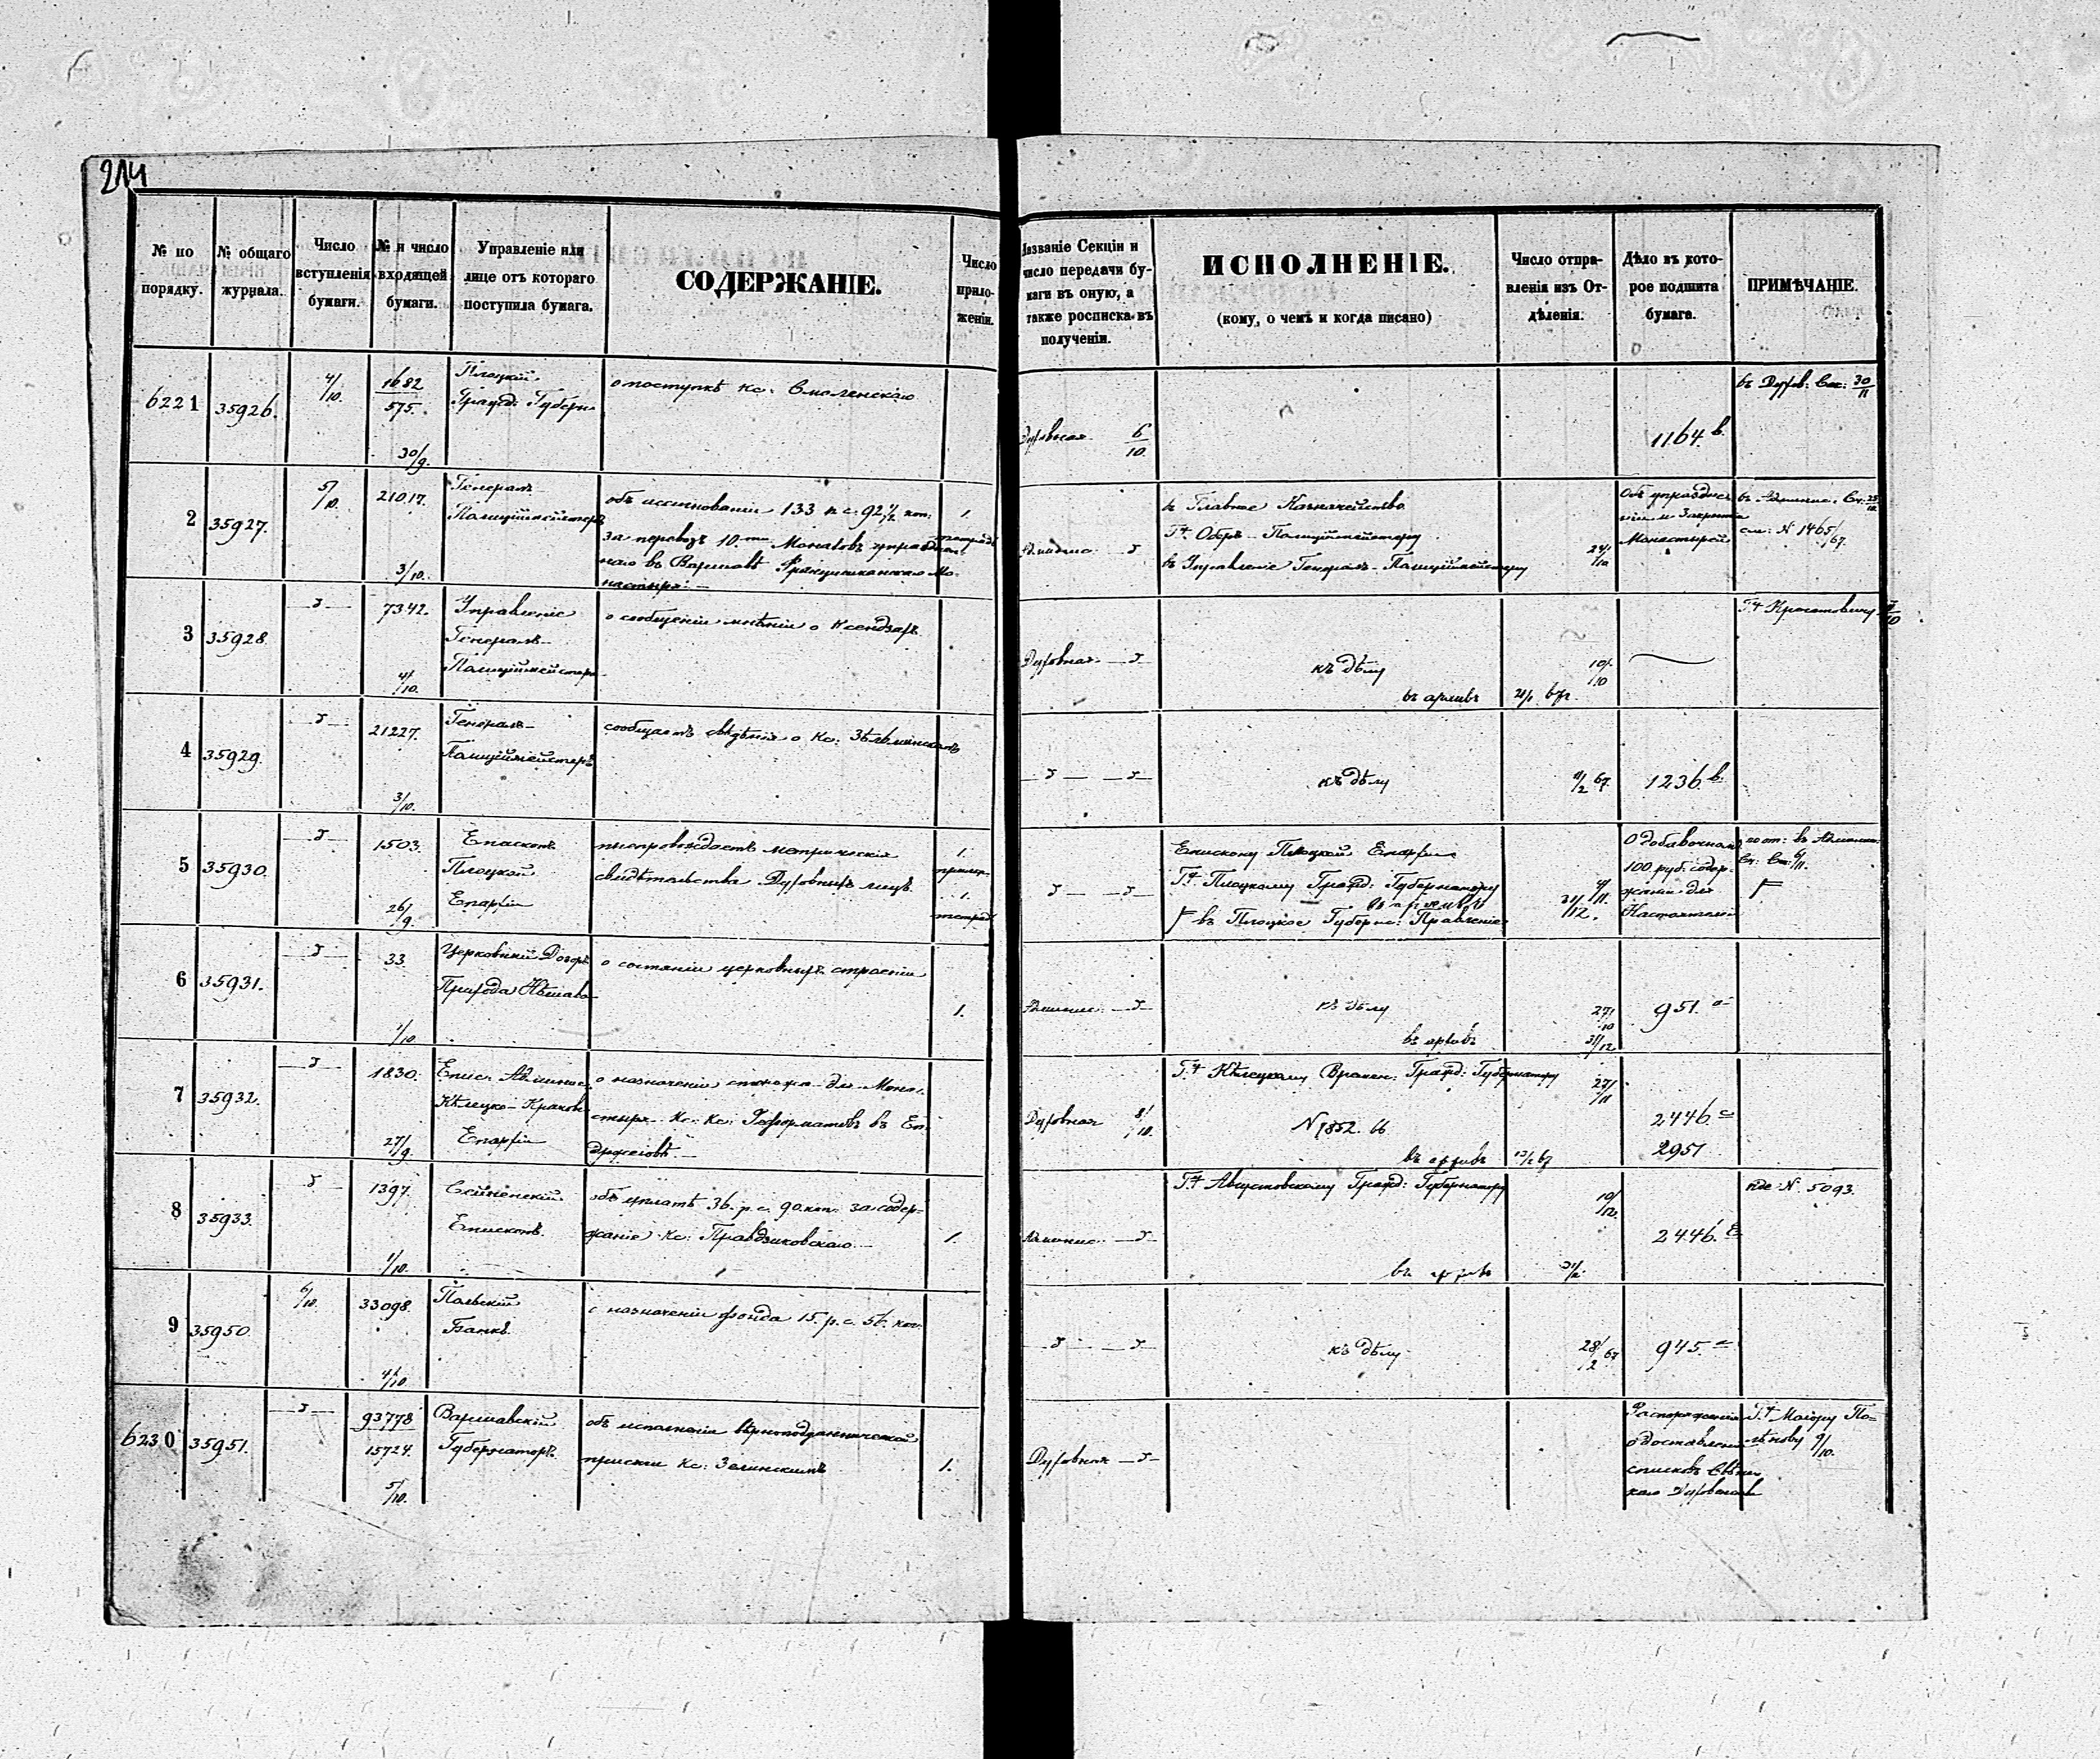 214
№ по порядку.
№ общаго журнала.
Число вступленія бумаги.
№ и число входящей бумаги.
Управленіе или лице отъ котораго поступила бумага.
СОДЕРЖАНІЕ.
Число приложеній.
Названіе Секціи и число передачи бумаги въ оную, а также росписка въ полученіи.
ИСПОЛНЕНІЕ.
(кому, о чемъ и когда писано)
Число отправленія изъ Отдѣленія.
Дѣло въ которое подшита бумага.
ПРИМѢЧАНІЕ.
6221 35926. 4/10. 1682/575. 30/9.
Плоцкій
Гражд: Губерн.
о поступкѣ кс: Смоленскаго
Духовная 6/10.
1164 в.
въ Духов: Сек: 30/11
2 35927. 5/10. 21017. 3/10.
Генералъ-
Полиціймейстеръ
объ ассигнованіи 133 р.с. 92 1/2 коп:
за перевозъ 10.ти Монаховъ упраздненнаго въ Варшавѣ Францишканскаго Монастыря.—
1. тетрадь
въ Главное Казначейство
Гну Оберъ-Полиціймейстеру
въ Управленіе Генералъ-Полиціймейстера
24/10
Монастырей
см: N 1465/67.
3 35928. 7342. 4/10.
Управленіе
Генералъ-
Полиціймейстера
о сообщеніи мнѣнія о Ксендзахъ
Духовная
къ дѣлу
10/10
въ архивъ
4 35929. 21227. 3/10.
Генералъ-
Полиціймейстеръ
сообщаетъ свѣдѣнія о Кс:
къ дѣлу
11/2 67.
1236 в.
5 35930. 1503. 26/9.
Епископъ
Плоцкой
Епархіи
препровождаетъ метрическія
свидѣтельства Духовныхъ лицъ
1.
1.
тетрадь
Епископу Плоцкой Епархіи
Гну Плоцкому Гражд: Губернатору
въ архивъ
въ Плоцкое Губерн: Правленіе
О добавочномъ
100 руб: содержаніи для
Настоятелей
6 35931. 33. 1/10.
Церковный Дозоръ
Прихода
о состояніи церковныхъ строеній
1.
къ дѣлу
27/10
въ архивъ
31/12
951. а
7 35932. 1830. 27/9.
Епис: Админис:
Кѣлецко-Краков:
Епархіи
о назначеніи сторожа для Монастыря Кс: Кс: Реформатовъ въ Енджеіовѣ.—
Духовная 8/10.
Гну Кѣлецкому Времен: Гражд: Губернатору
27/11
N 7852. 66
въ архивъ
2446 с
2951
8 35933. 1397. 1/10.
Сейненскій
Епископъ.
объ уплатѣ 36. р.с. 90. коп. за содержаніе Кс: Правдзиковскаго.—
1.
Гну Августовскому Гражд: Губернатору
10/12.
въ архивъ
2446.
N. 5093.
9 35950. 6/10. 33098. 4/10
Польскій
Банкъ.
о назначеніи фонда 15. р.с. 56. коп.
къ дѣлу
28/2 67
945.
6230 35951. 93778/15724. 5/10.
Варшавскій
Губернаторъ.
объ исполненіи вѣрноподданнической
присяги Кс: Зелинскимъ
1.
Духовная
о доставленіи
списковъ
Духовенства
Гну Маіору
9/10.